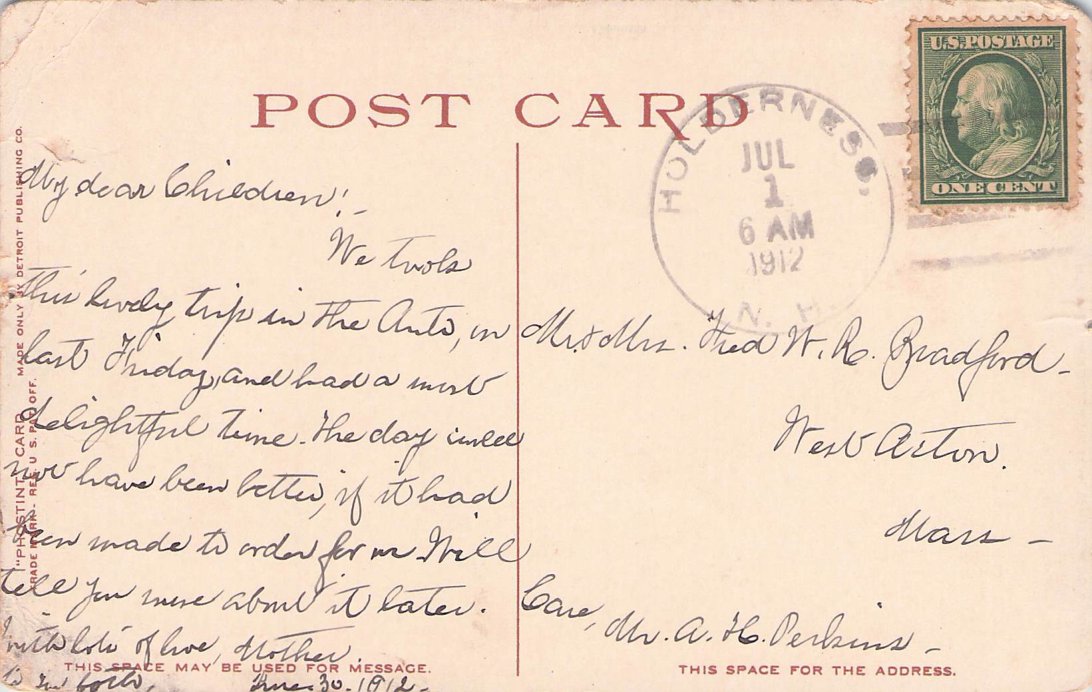 POST CARD
U.S. POSTAGE
ONE CENT
HOLDERNESS,
JUL
1
6 AM
1912
N. H.
"PHOSTINT" CARD MADE ONLY BY DETROIT PUBLISHING CO.
TRADE MARK REG. U. S. PAT. OFF.
My dear Children! -
We took
this lovely trip in the Auto, on
last Friday, and had a most
delightful time. The day could
not have been better, if it had
been made to order for us Will
tell you more about it later.
with lots of love, Mother.
to you both,
June 30. 1912 -
THIS SPACE MAY BE USED FOR MESSAGE.
Mr. & Mrs. Fred W. R. Bradford -
West Acton.
Mass -
Care, Mr. A. H. Perkins -
THIS SPACE FOR THE ADDRESS.